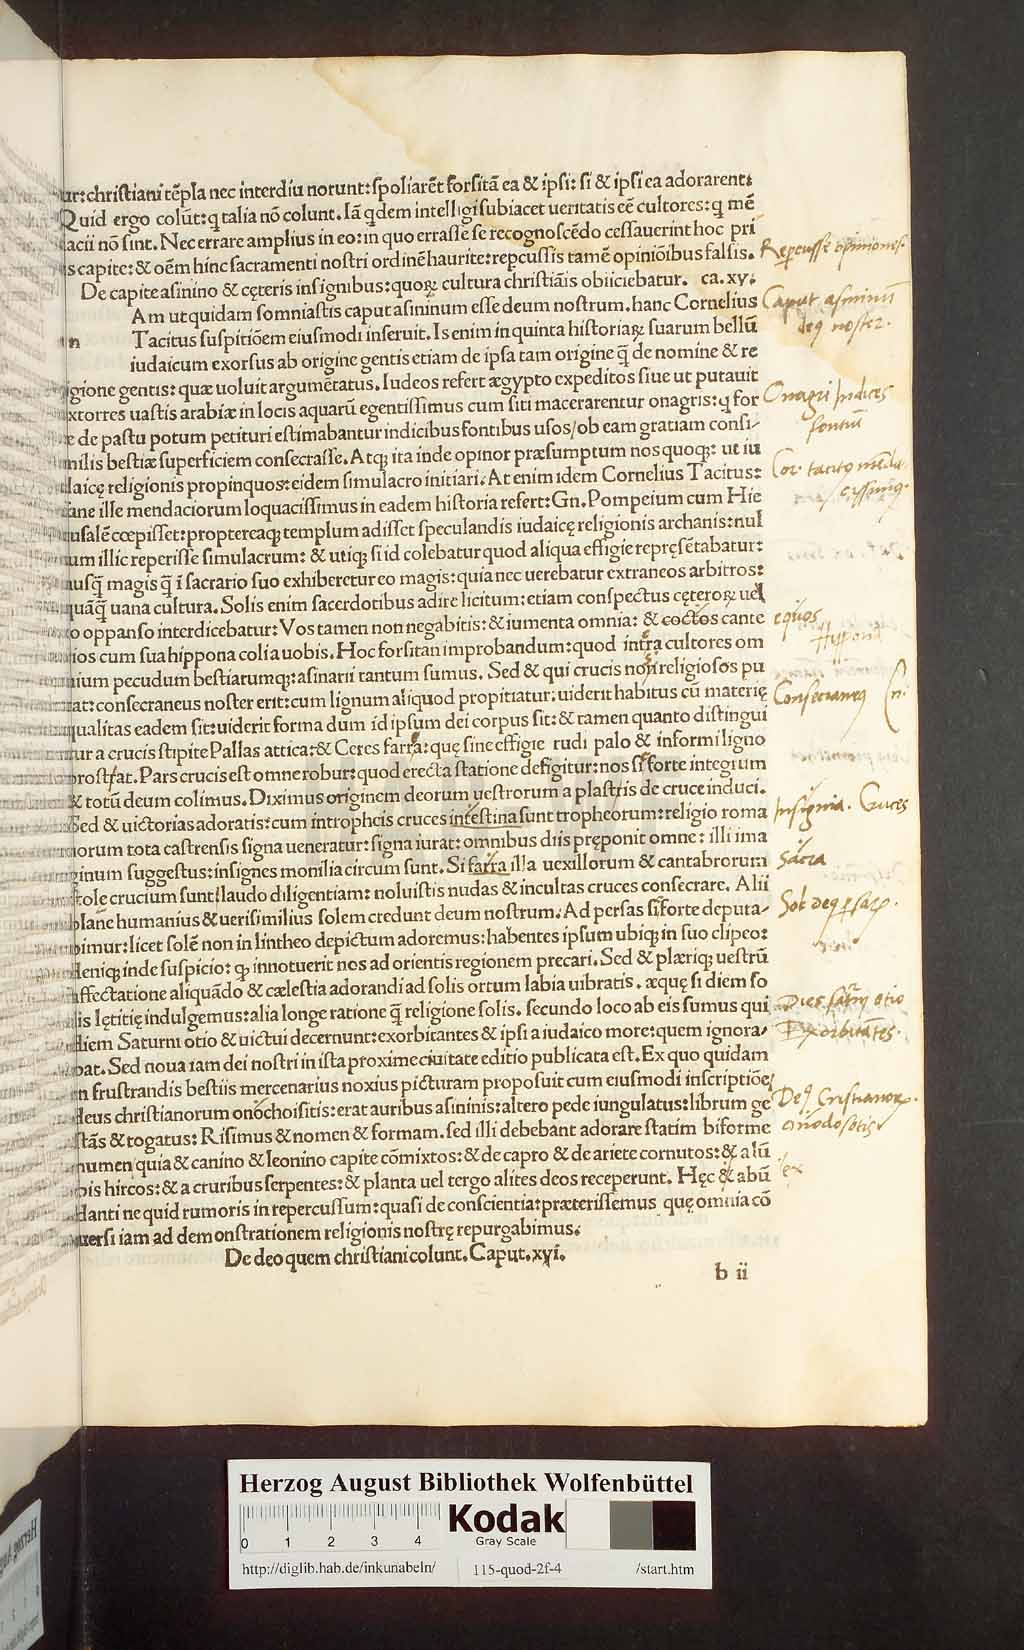 ur: christiani tēpla nec interdiu norunt: spoliarēt forsitā ea & ipsi: si & ipsi ea adorarent:
Quid ergo colūt: q talia nō colunt. Iā qdem intelligi subiacet ueritatis eē cultores: q mē
acii nō sint. Nec errare amplius in eo: in quo errasse se recognoscēdo cessauerint hoc pri
s capite: & oēm hinc sacramenti nostri ordinē haurite: repcussis tamē opiniōibus falsis.
Repercusse opiniones.
De capite asinino & cęteris insignibus: quoꝝ cultura christiāis obiiciebatur. ca. xv.
Am ut quidam somniastis caput asininum esse deum nostrum. hanc Cornelius
Caput asininū
deꝰ noster.
n Tacitus suspitiōem eiusmodi inseruit. Is enim in quinta historiaꝝ suarum bellū
iudaicum exorsus ab origine gentis etiam de ipsa tam origine q̄ de nomine & re
gione gentis: quæ uoluit argumētatus. Iudeos refert ægypto expeditos siue ut putauit
xtorres uastis arabiæ in locis aquarū egentissimus cum siti macerarentur onagris: q for
Onagri Indices
fontiū
e de pastu potum petituri estimabantur indicibus fontibus usos/ob eam gratiam consi-
milis bestiæ superficiem consecrasse. Atq; ita inde opinor præsumptum nos quoq; ut iu
laicę religionis propinquos: eidem simulacro initiari. At enim idem Cornelius Tacitus:
Cor. tacitꝰ
ane ille mendaciorum loquacissimus in eadem historia refert: Gn. Pompeium cum Hie
usalē cœpisset: proptereaq; templum adisset speculandis iudaicę religionis archanis: nul
um illic reperisse simulacrum: & utiq; si id colebatur quod aliqua effigie repręsētabatur:
usq̄ magis q̄ ī sacrario suo exhiberetur eo magis: quia nec uerebatur extraneos arbitros:
quāq̄ uana cultura. Solis enim sacerdotibus adire licitum: etiam conspectus cęteroꝝ uel
o oppanso interdicebatur: Vos tamen non negabitis: & iumenta omnia: & coctos cante
equos
ios cum sua hippona coli a uobis. Hoc forsitan improbandum: quod intra cultores om
Hyppona
nium pecudum bestiatumq; asinarii tantum sumus. Sed & qui crucis non religiosos pu
at: consecraneus noster erit: cum lignum aliquod propitiatur: uiderit habitus cū materię
Consecraneꝰ
qualitas eadem sit: uiderit forma dum id ipsum dei corpus sit: & tamen quanto distingui
tur a crucis stipite Pallas attica: & Ceres farra: quę sine effigie rudi palo & informi ligno
prostat. Pars crucis est omne robur: quod erecta statione defigitur: nos si forte integium
& totū deum colimus. Diximus originem deorum uestrorum a plastris de cruce induci.
Sed & uictorias adoratis: cum in tropheis cruces intestina sunt tropheorum: religio roma
Insignia. Cruces
norum tota castrensis signa ueneratur: signa iurat: omnibus diis pręponit omne: illi ima
ginum suggestus: insignes monilia circum sunt. Si farra illa uexillorum & cantabrorum
Sacra
stole crucium sunt: laudo diligentiam: noluistis nudas & incultas cruces consecrare. Alii
plane humanius & uerisimilius solem credunt deum nostrum. Ad persas si forte deputa-
Sol deꝰ persaꝝ.
bimur: licet solē non in lintheo depictum adoremus: habentes ipsum ubiq; in suo clipeo:
deniq; inde suspicio: ꝙ innotuerit nos ad orientis regionem precari. Sed & plæriq; uestrū
affectatione aliquādo & cælestia adorandi ad solis ortum labia uibratis. æquę si diem so
lis lętitię indulgemus: alia longe ratione q̄ religione solis. secundo loco ab eis sumus qui
Dies satrny otio
diem Saturni otio & uictui decernunt: exorbitantes & ipsi a iudaico more: quem ignora-
Exorbitātes.
bat. Sed noua iam dei nostri in ista proxime ciuitate editio publicata est. Ex quo quidam
n frustrandis bestiis mercenarius noxius picturam proposuit cum eiusmodi inscriptiōe:
deus christianorum onochoisitis: erat auribus asininis: altero pede iungulatus: librum ge
Deꝰ Cristianoꝝ.
stās & togatus: Risimus & nomen & formam. sed illi debebant adorare statim biforme
numen quia & canino & leonino capite cōmixtos: & de capro & de ariete cornutos: & a lū
bis hircos: & a cruribus serpentes: & planta uel tergo alites deos receperunt. Hęc & abū
ex
danti ne quid rumoris in repercussum: quasi de conscientia: præterissemus quę omnia cō
uersi iam ad demonstrationem religionis nostrę repurgabimus.
De deo quem christiani colunt. Caput. xvi.
b ii
Herzog August Bibliothek Wolfenbüttel
Kodak
Gray Scale
0 1 2 3 4
http://diglib.hab.de/inkunabeln/ 115-quod-2f-4 /start.htm